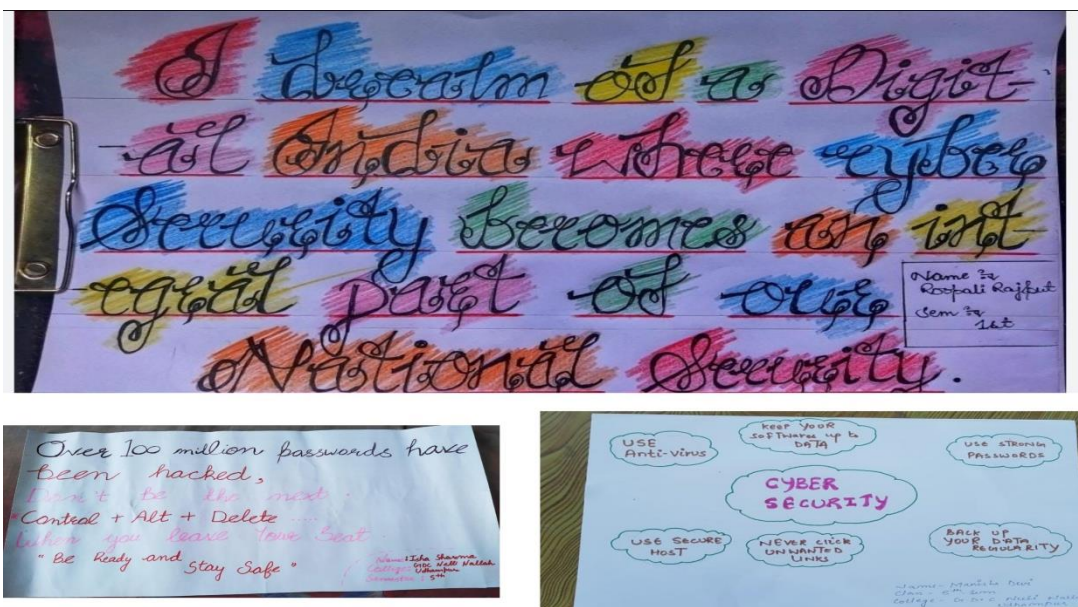 I dream of a Digit-
-al India where cyber
Security becomes an int-
egral part of our
National Security.
Name :-
Roopali Rajput
Sem :-
1st
Over 100 million passwords have
been hacked,
Don't Be the next.
*Control + Alt + Delete ....
When you leave Your Seat.
"Be Ready and
Stay Safe"
Name: Isha Sharma
College: GDC Nalli Nallah
Udhampur
Semester: 5th
USE
Anti-virus
KEEP YOUR
SOFTWARE up to
DATA
USE STRONG
PASSWORDS
CYBER
SECURITY
USE SECURE
HOST
NEVER CLICK
UNWANTED
LINKS
BACK UP
YOUR DATA
REGULARITY
Name - Manisha Devi
Class - 5th Sem
College - G.D.C
Udhampur